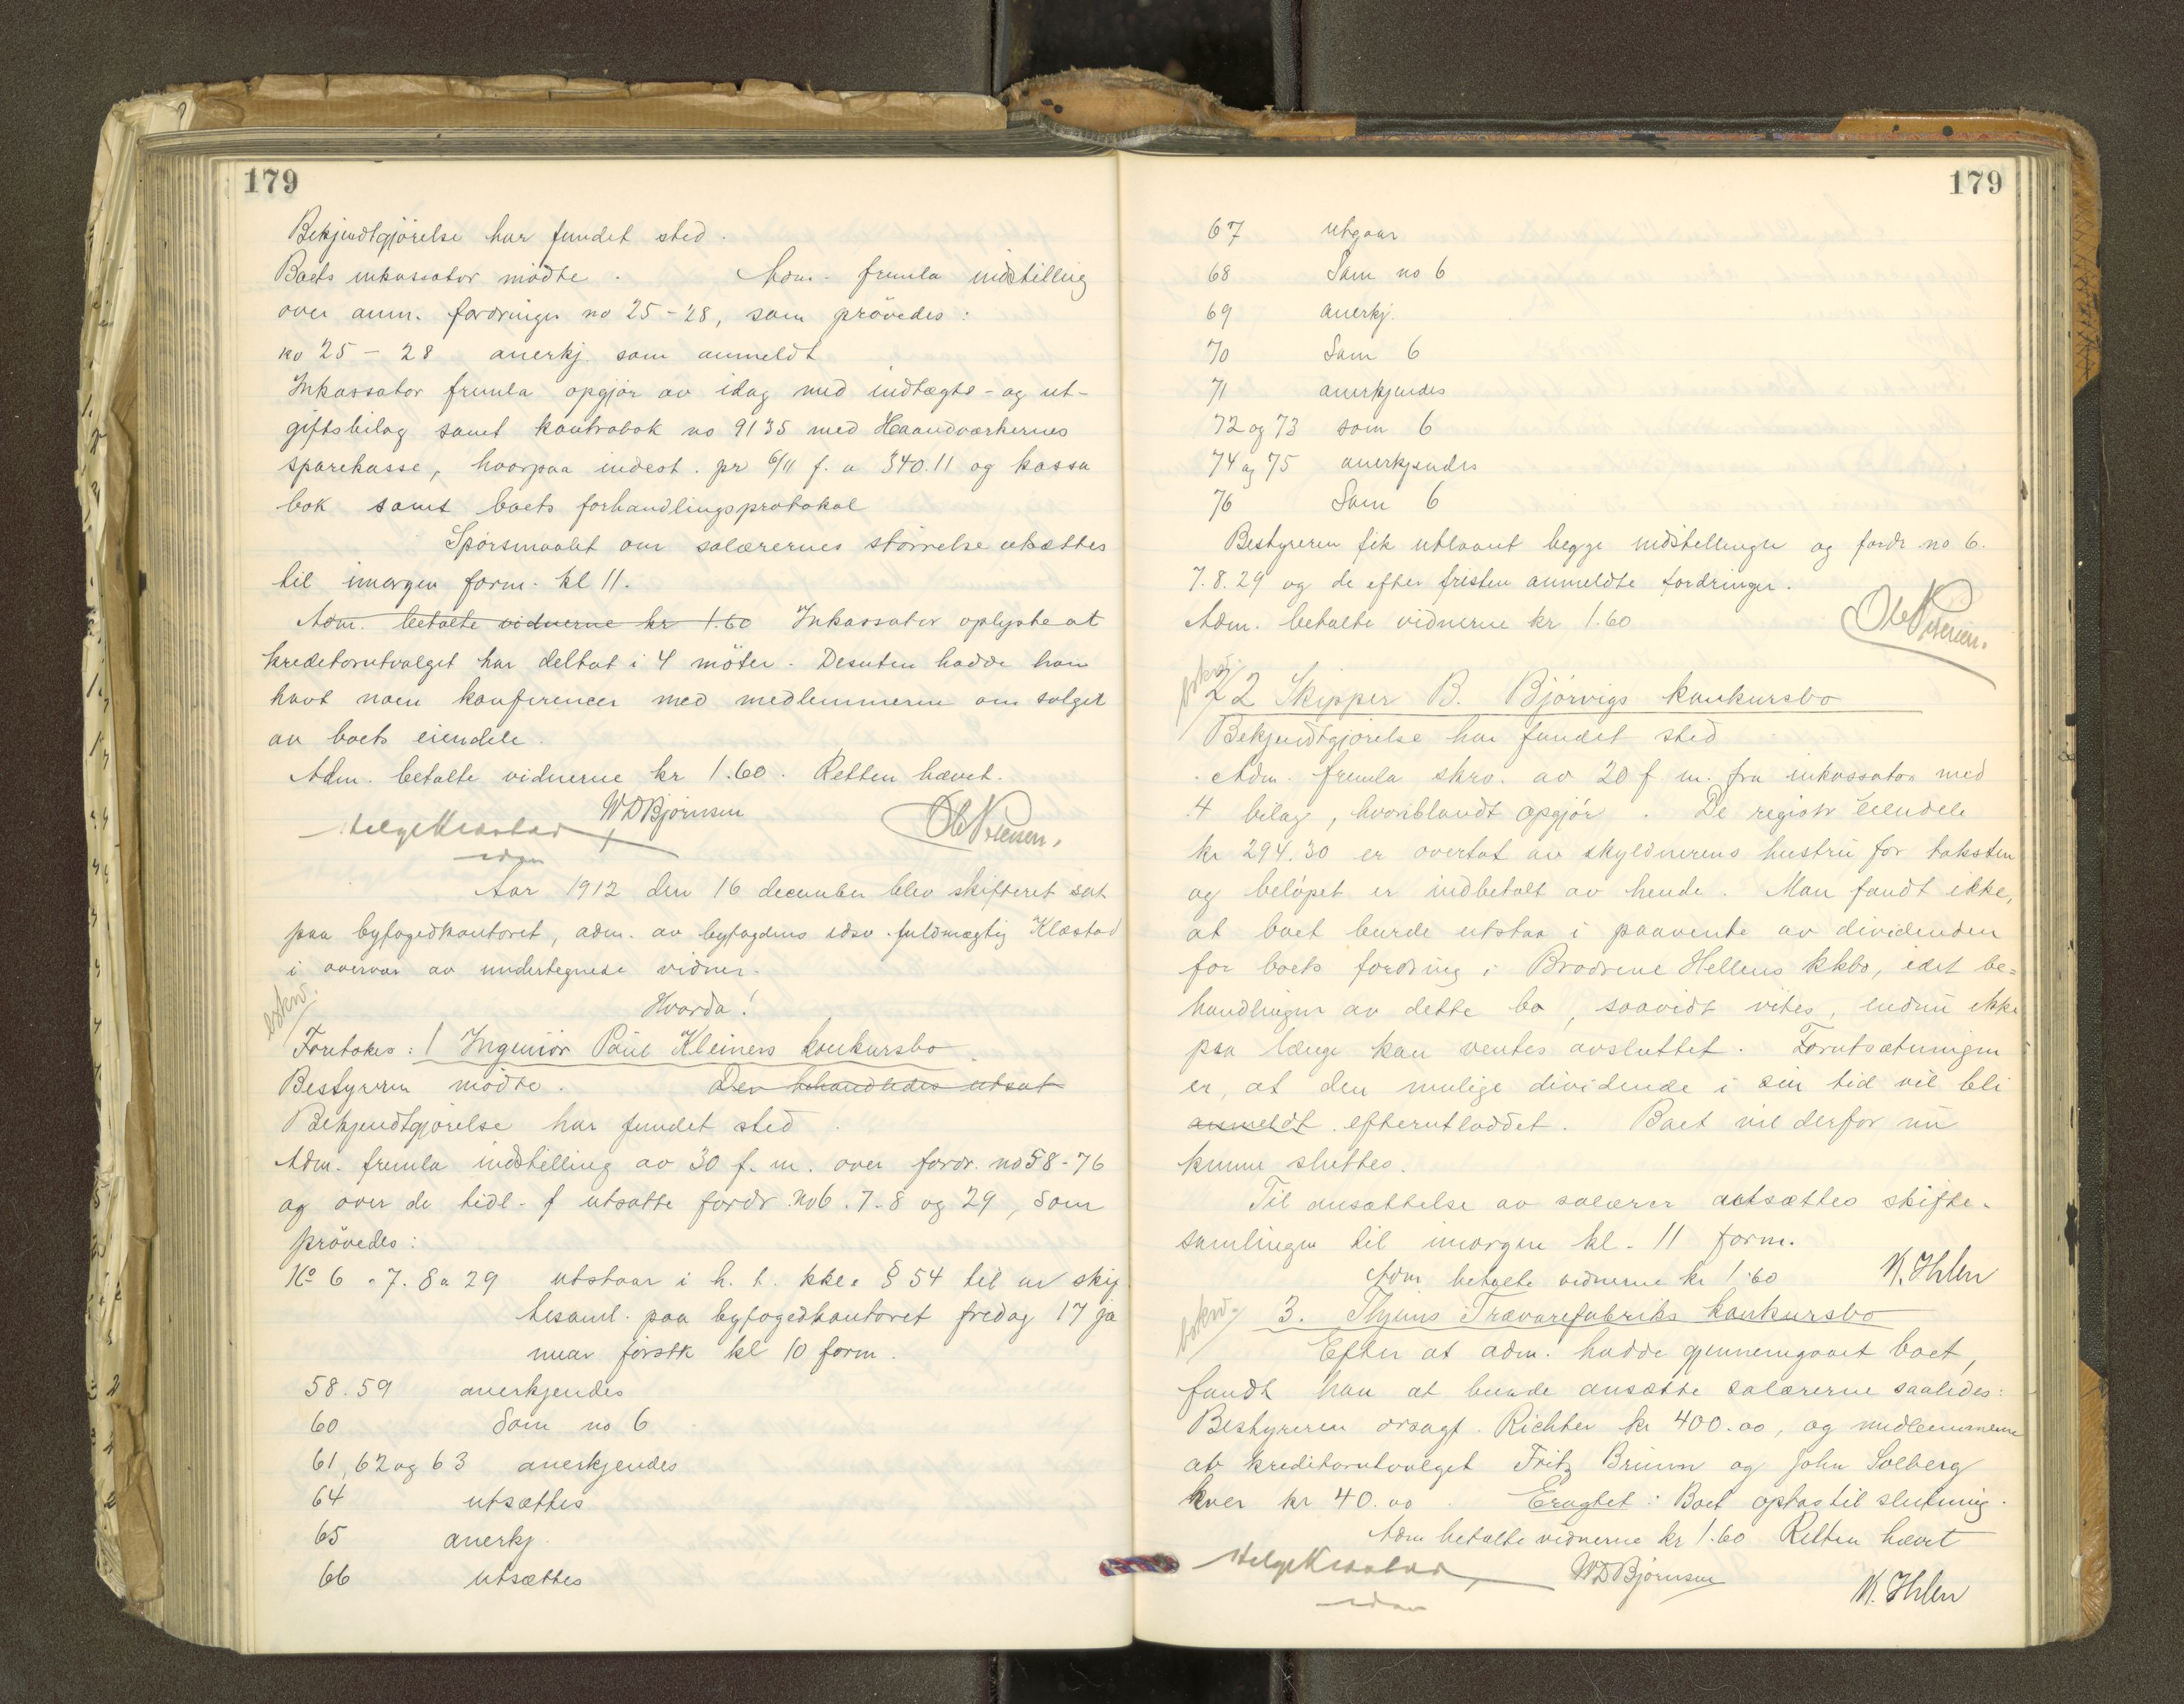 179
Bekjendtgjörelse har fundet sted.
Boets inkassator mödte. Adm. fremla indstilling
over anm. fordringer no 25-28, som prövedes:
no 25 - 28 anerkj. som anmeldt
Inkassator fremla opgjör av idag med indtægts- og ut-
giftsbilag samt kontrabok no 9135 med Haandverkernes
sparekasse, hvorpaa indest. pr 6/11 f. a 340.11 og kassa
bok samt boets forhandlingsprotokol
Spörsmaalet om salærernes störrelse utsættes
til imorgen form. kl 11.
Adm. betalte vidnerne kr 1.60 Inkassator oplyste at
kreditorutvalget har deltat i 4 möter. Desuten hadde han
havt noen konferencer med medlemmerne om salget
av boets eiendele.
Adm. betalte vidnerne kr 1.60. Retten hævet.
Helge Klæstad WDBjörnsen
Aar 1912 den 16 december blev skifteret sat
paa byfogedkontoret, adm. av byfogdens edsv. fuldmægtig Klæstad
i overvær av undertegnede vidner.
bokw.
Hvorda!
Foretokes: 1 Ingeniör Paul Kleiners konkursbo
Bestyreren mödte. Der behandledes utsat
Bekjendtgjörelse har fundet sted.
Adm. fremla indstilling av 30 f. m. over fordr. no 58-76
og over de tidl. utsatte fordr. no 6. 7. 8 og 29, som
prövedes:
No 6. 7. 8 a 29 utstaar i h. t. kkl. § 54 til ny skif
tesaml. paa byfogedkontoret fredag 17 ja
nuar förstk kl 10 form.
58. 59 anerkjendes
60 Som no 6
61, 62 og 63 anerkjendes
64 utsættes
65 anerkj.
66 utsættes
179
67 utgaar
68 Som no 6
69 anerkj.
70 Som 6
71 anerkjendes
72 og 73 som 6
74 og 75 anerkjendes
76 Som 6
Bestyreren fik utlaant begge indstillinger og fordr no 6.
7. 8. 29 og de efter fristen anmeldte fordringer.
Adm. betalte vidnerne kr 1.60
bokw.
2 Skipper B. Björvigs konkursbo
Bekjendtgjörelse har fundet sted
Adm. fremla skrv. av 20 f. m. fra inkassator med
4 bilag, hvoriblandt opgjör. De registr eiendele
kr 294.30 er overtat av skyldnerens hustru for taksten
og belöpet er indbetalt av hende. Man fandt ikke,
at boet burde utstaa i paavente av dividenden
for boets fordring i Brödrene Hellens kkbo, idet be-
handlingen av dette bo, saavidt vites, endnu ikke
paa længe kan ventes avsluttet. Forutsætningen
er, at den mulige dividende i sin tid vil bli
anmeldt efterutloddet. Boet vil derfor nu
kunne sluttes.
Til ansættelse av salærer utsættes skifte-
samlingen til imorgen kl. 11 form.
Adm. betalte vidnerne kr 1.60 K. Ihlen
bokw.
3. Thjems Trævarefabriks konkursbo
Efter at adm. hadde gjennemgaaet boet,
fandt han at burde ansætte salærerne saaledes:
Bestyreren orsagf. Richter kr 400.00, og medlemmerne
av kreditorutvalget Fritz Bruun og John Solberg
hver kr 40.00. Eragtet: Boet optas til slutning.
Adm betalte vidnerne kr 1.60 Retten hævet
Helge Klæstad WDBjörnsen
K. Ihlen